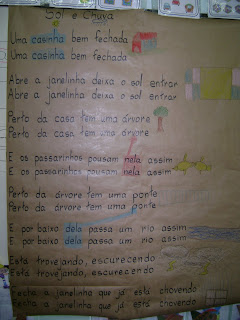 Sol e Chuva
Uma casinha bem fechada
Uma casinha bem fechada
Abre a janelinha deixa o sol entrar
Abre a janelinha deixa o sol entrar
Perto da casa tem uma árvore
Perto da casa tem uma árvore
E os passarinhos pousam nela assim
E os passarinhos pousam nela assim
Perto da árvore tem uma ponte
Perto da árvore tem uma ponte
E por baixo dela passa um rio assim
E por baixo dela passa um rio assim
Está trovejando, escurecendo
Está trovejando, escurecendo
Fecha a janelinha que já está chovendo
Fecha a janelinha que já está chovendo